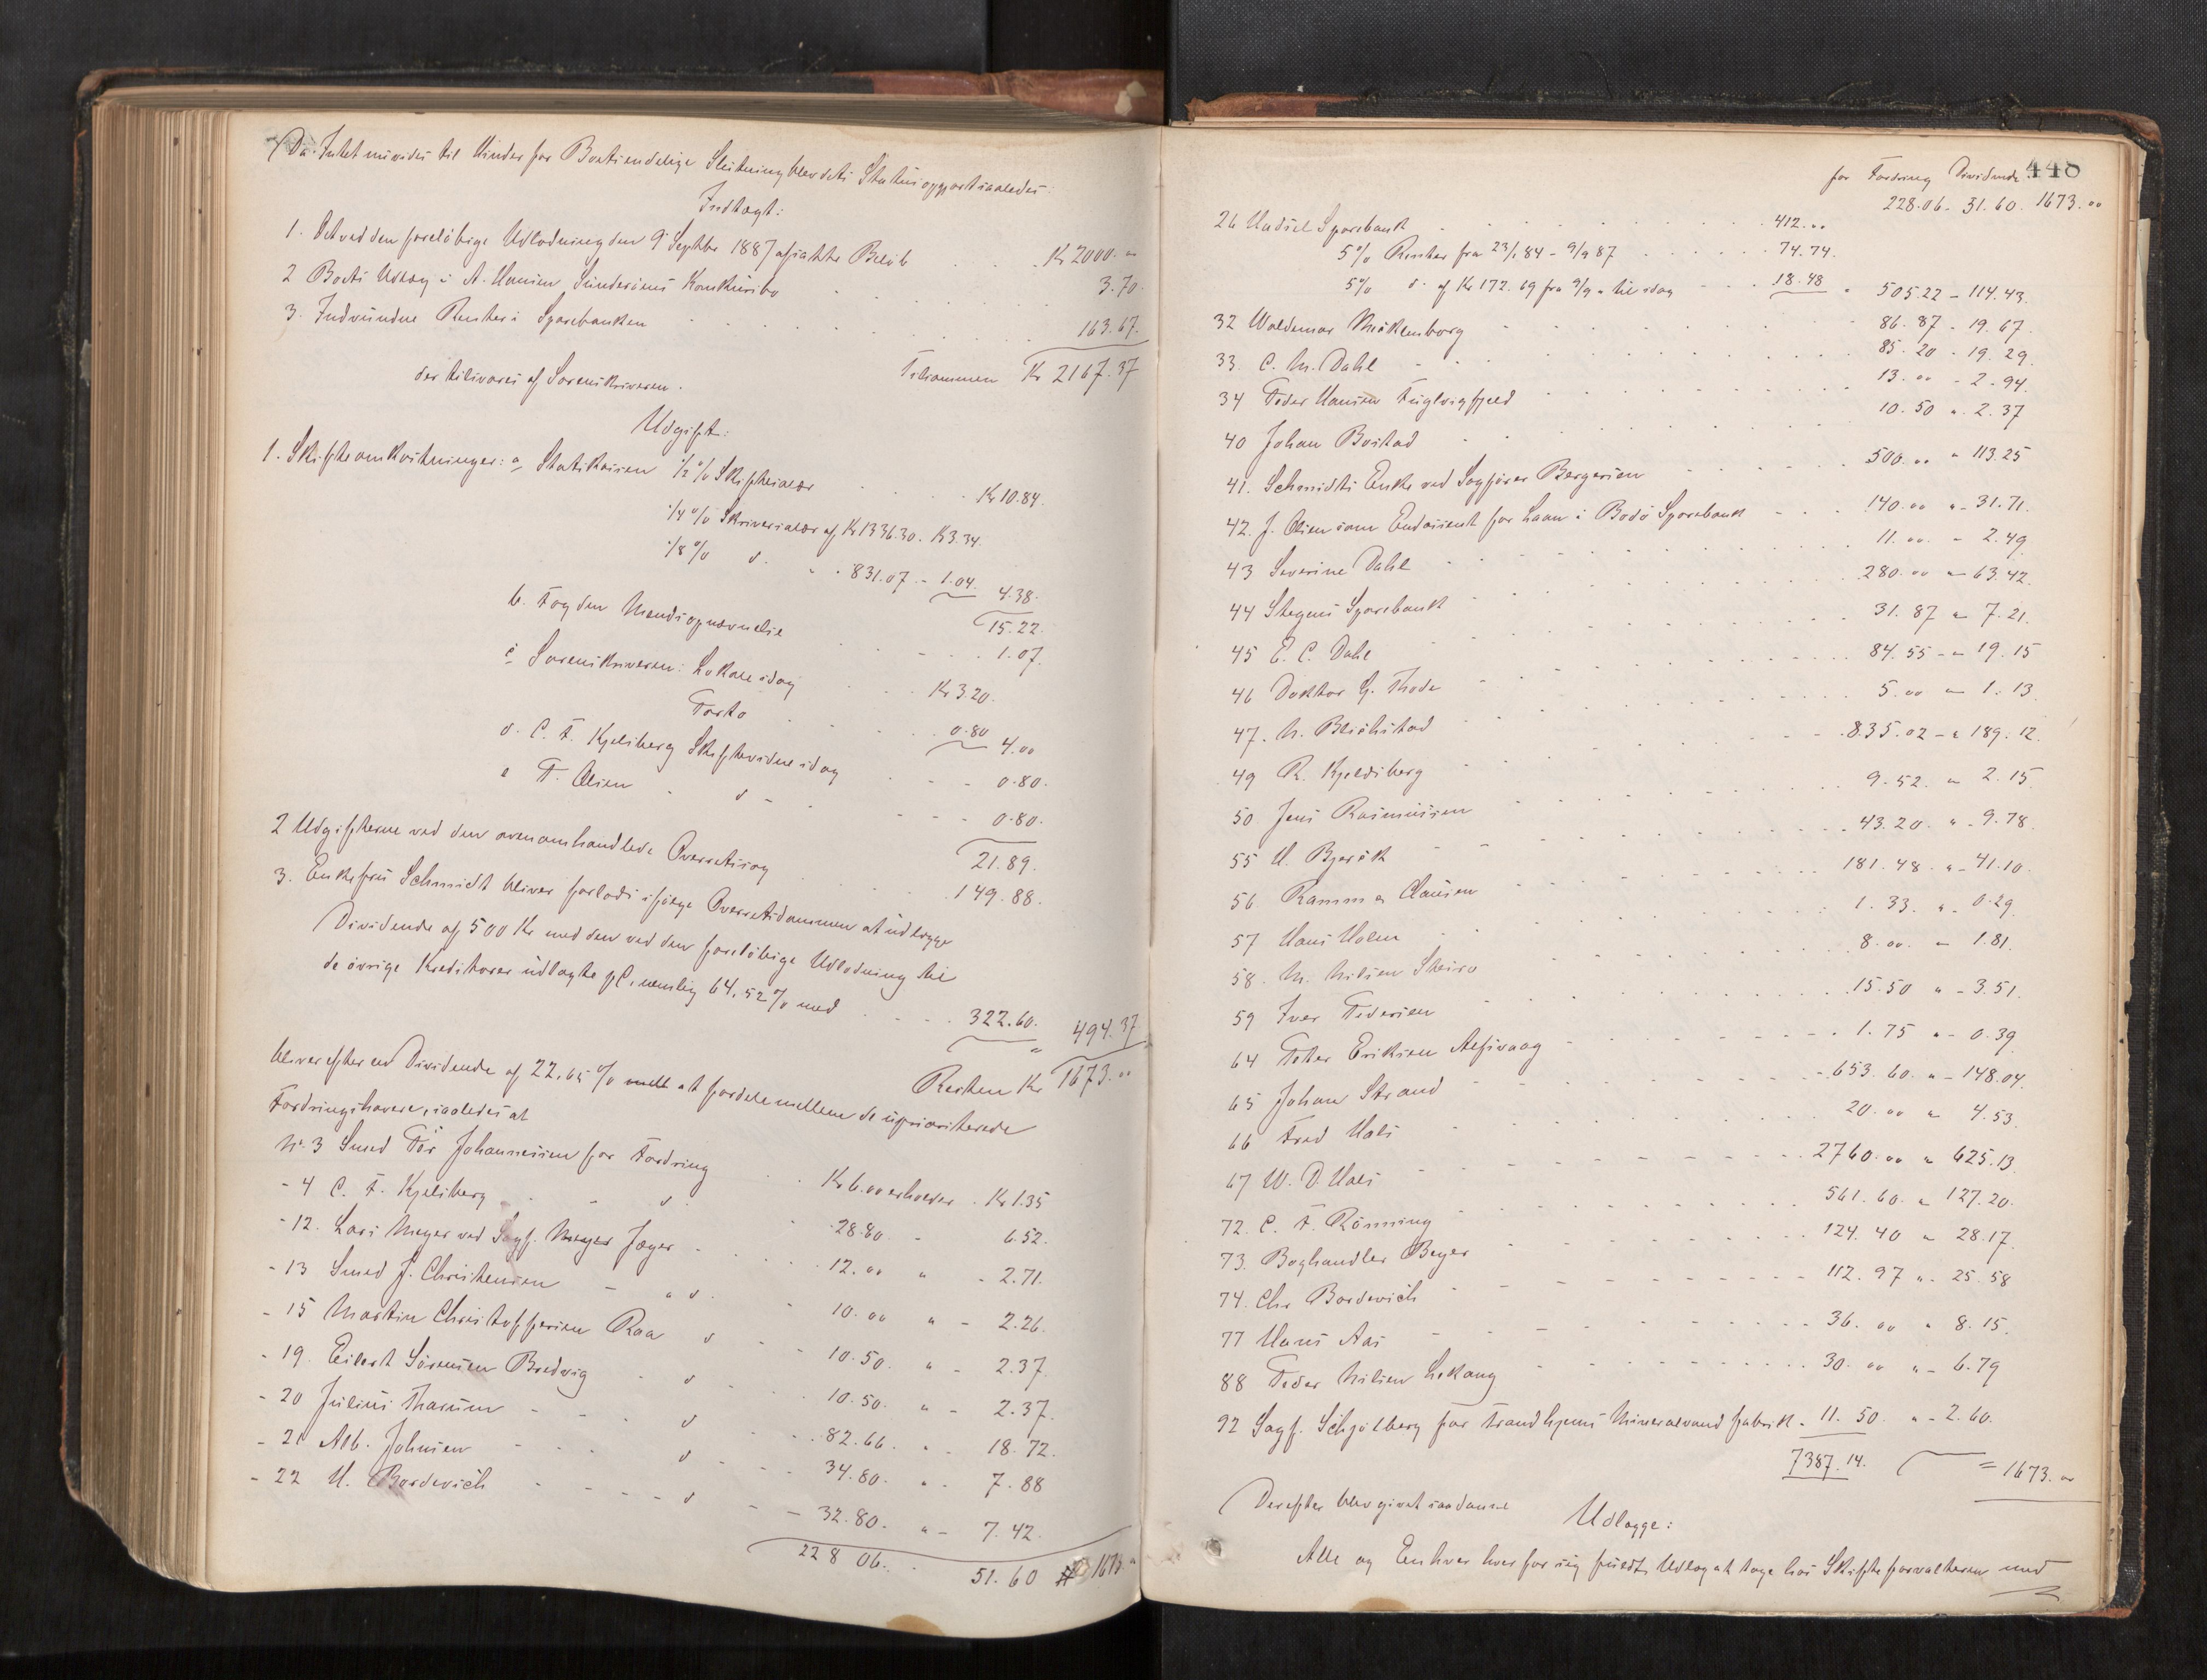 Da Intet navides til Hinder for Boets endelige Slutning blev dets Status opgjort saaledes:
Indtægt:
1. Det ved den foreløbige Udlodning den 9 Septbr 1887 afsatte Beløb . . . Kr 2000.00
2 Boets Udlæg i A. Hansen Sunderøens Konkursbo . . . 3.70.
3. Indvundne Renter i Sparebanken . . . 163.67.
Tilsammen Kr 2167.37
der tilsvares af Sorenskriveren.
Udgift:
1. Skifteomkostninger: a, Statskassen ½ % Skiftesalær . . . Kr 10.84.
¼ % Skriversalær af Kr 1336.30. Kr 3.34.
⅛ % d. " - 831.07 - 1.04. 4.38.
15.22.
b. Fogden Mændsopnævnelse . . . 1.07.
c, Sorenskriveren: Lokale idag . . . Kr 3.20.
Porto . . . 0.80 4.00
d. C. F. Kjelsberg Skiftevidne idag . . . 0.80.
e P. Olsen - d - . . . 0.80.
21.89.
2 Udgifterne ved den ovenomhandlede Overretssag . . . 149.88.
3. Enkefru Schmidt bliver forlods ifølge Overretsdommen at udlægge
Dividende af 500 Kr med den ved den foreløbige Udlodning til
de øvrige Kreditorer udlagte pC, nemlig 64,52 % med . . . 322.60. 494.37
Resten Kr 1673.00
bliver efter en Dividende af 22,65 % at fordele mellem de uprioriterede
Fordringshavere, saaledes at
No. 3 Smed Per Johannessen for Fordring . . Kr 6.00 erholder . Kr 1.35
- 4 C. F. Kjelsberg - d . 28.80 - 6.52.
- 12. Lars Meyer ved Sagf. Jæger - . . 12.00 " - 2.71.
- 13 Smed J. Christensen - " d. - 10.00 " - 2.26.
- 15 Martin Christoffersen Raa d - - 10.50. " - 2.37.
- 19. Eilert Sørensen Bredvig . d - . . 10.50. " - 2.37.
- 20 Julius Thasum - - . d . . . 82.66. " . 18.72.
- 21 Alb. Johnsen - . . . d - - - 34.80. . . 7.88
- 22 H. Bordevich - . - - - d - - 32.80. " - 7.42.
228 06. . 51.60 1673."
448
for Fordring Dividende
228.06. 31.60. 1673.00
26 Hadsel Sparebank . . . 412.00
5 % Renter fra 23/1 84 - 9/9 87 . . . 74.74.
5 % d. af Kr 172.69 fra 9/9 " til idag . . . 18.48 " 505.22 - 114.43.
32 Waldemar Meklenborg . . . 86.87 - 19.67.
33. C. M. Dahl . . . 85.20 - 19.29.
34 Peder Hansen Fuglvigfjeld . . . 13.00 - 2.94.
40 Johan Bostad . . . 10.50 " 2.37
41. Schmidts Enke ved Sagfører Børgesen . . . 500.00 " 113.25
42. J. Olsen som Endossent for Laan i Bodø Sparebank . . . 140.00 " - 31.71.
43 Severine Dahl . . . 11.00. - 2.49.
44 Stegens Sparebank . . . 280.00 " 63.42.
45 E. C. Dahl . . . 31.87 " 7.21.
46 Doktor G. Thode . . . 84.55 - " 19.15
47. N. Bleikstad . . . 5.00 " 1.13.
49 R. Kjeldsberg . . . 835.02 - " 189.12.
50 Jens Rasmussen . . . 9.52. " 2.15.
55 H. Bjerk . . . 43.20. " - 9.78.
56 Ramm & Clausen . . . 181.48. " - 41.10.
57 Hans Holm . . . 1.33. " - 0.29.
58. M. Nilsen Steiro . . . 8.00. - 1.81.
59 Iver Pedersen . . . 15.50 " - 3.51.
64 Peter Eriksen Alfsvaag . . . 1.75 " - 0.39.
65 Johan Strand . . . 653.60. " - 148.04.
66 Fred Hals . . . 20.00 " 4.53.
67 W. D. Hals . . . 2760.00 " 625.13.
72. C. F. Rønning . . . 561.60. " 127.20.
73. Boghandler Beyer . . . 124.40 " 28.17.
74. Chr Bordevich . . . 112.97 ". 25.58
77 Hans Aas . . . 36.00 " 8.15.
88 Peder Nilsen Lekang . . . 30.00 " - 6.79
92 Sagf. Schjølberg for Trondhjems Mineralvandfabrik . 11.50. " - 2.60.
7387.14. = 1673.00
Derefter blev givet saadanne
Udlægge:
Alle og Enhver hver for sig fuldt Udlæg at tage hos Skifteforvalteren med